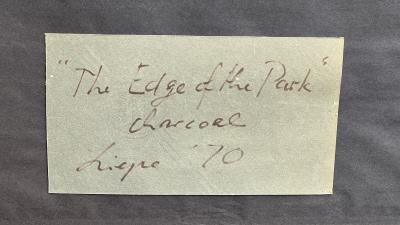 "The Edge of the Park"
charcoal
Liepa '70